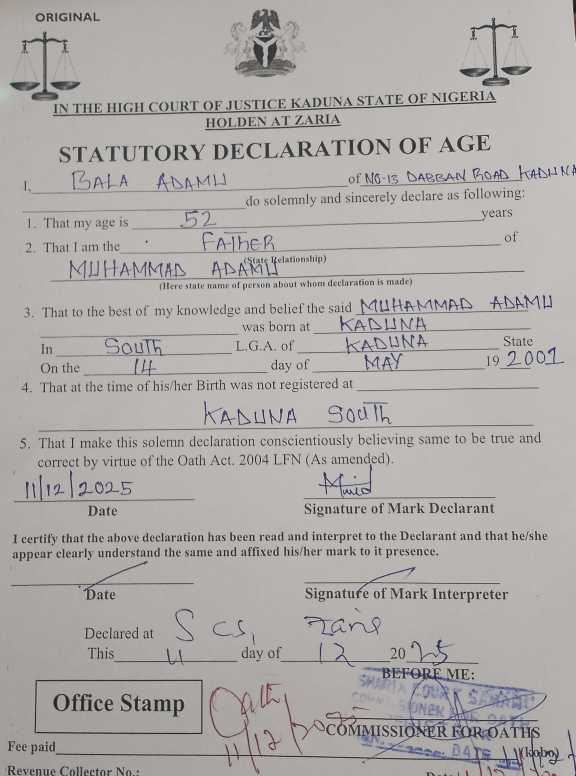 ORIGINAL
IN THE HIGH COURT OF JUSTICE KADUNA STATE OF NIGERIA
HOLDEN AT ZARIA
STATUTORY DECLARATION OF AGE
I, BALA ADAMU of NO-13 DABBAN ROAD KADUNA
do solemnly and sincerely declare as following:
1. That my age is 52 years
2. That I am the FATHER of
(State Relationship)
MUHAMMAD ADAMU
(Here state name of person about whom declaration is made)
3. That to the best of my knowledge and belief the said MUHAMMAD ADAMU
was born at KADUNA
In SOUTH L.G.A. of KADUNA State
On the 14 day of MAY 19 2001
4. That at the time of his/her Birth was not registered at
KADUNA SOUTH
5. That I make this solemn declaration conscientiously believing same to be true and
correct by virtue of the Oath Act. 2004 LFN (As amended).
11/12/2025
Date Signature of Mark Declarant
I certify that the above declaration has been read and interpret to the Declarant and that he/she
appear clearly understand the same and affixed his/her mark to it presence.
Date Signature of Mark Interpreter
Declared at S CS,
This 11 day of 12 2025
BEFORE ME:
SHARIA COURT
Office Stamp
Oath
11/12/2025
COMMISSIONER FOR OATHS
DATE
Fee paid (kobo)
Revenue Collector No.: